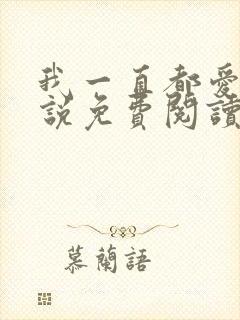 我一直都愛
說免費閱讀
慕蘭語